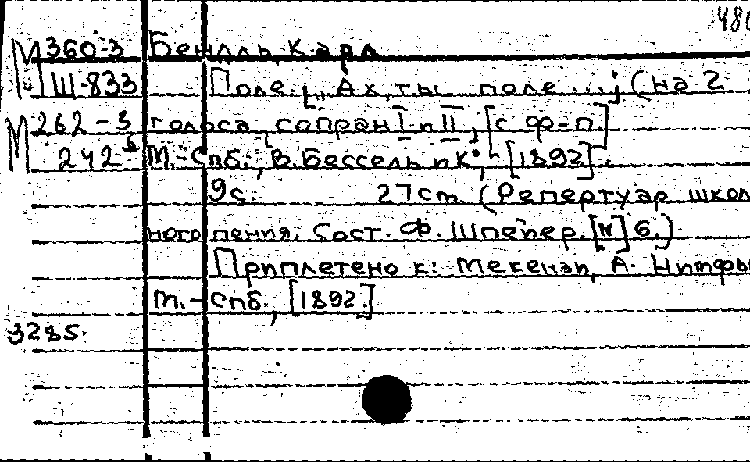 480
М 360-3 Бендль, Карл
Ш-833 Поле. „Ах, ты поле ...; (на 2
М 262-3 голоса, сопран I и II, [с ф-п.]
242 М.-Спб., В. Бессель и К°, [1892].
9с. 27cm (Репертуар школ
ного пения. Сост. Ф. Шпейер. [N] 6.)
Приплетено к: Мекензи, А. Нимфы
М.-Спб., [1892.]
3285.